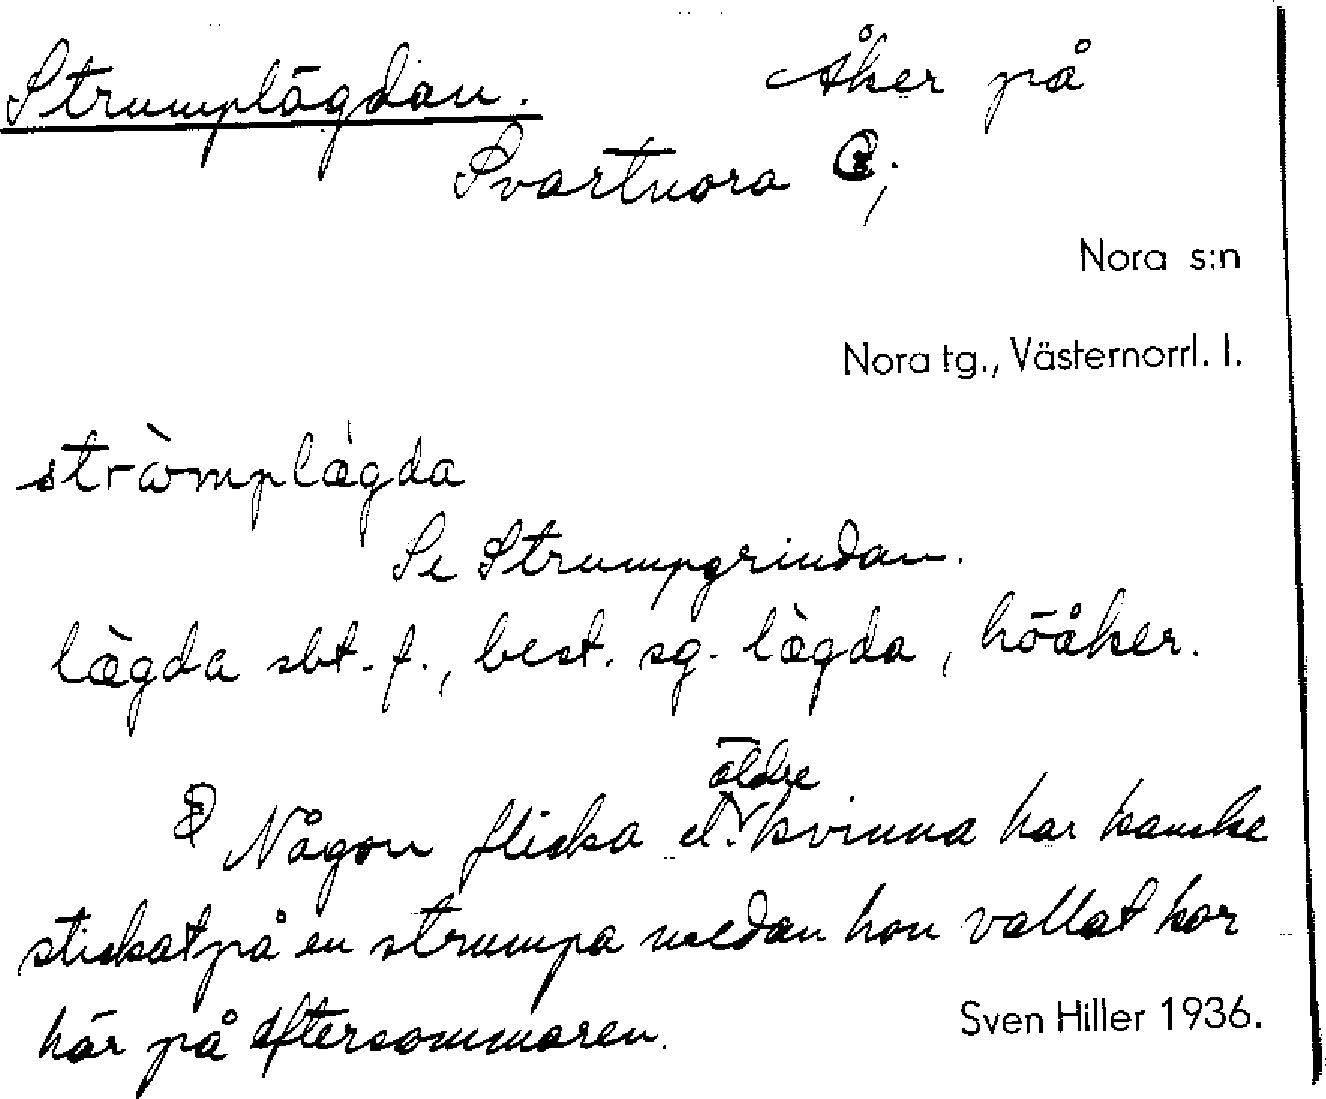 Strumplägdan. Åker på
Svartnora ;
Nora s:n
Nora tg., Västernorrl. l.
stròmplægda
Se Strumpgrindan.
lægda sbt. f., best. sg. lægda, höåker.
Någon flicka el. äldre kvinna har kanske
stickat på en strumpa medan hon vallat kor
här på eftersommaren.
Sven Hiller 1936.